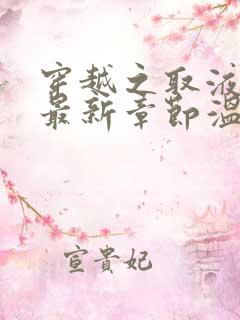 穿越之取液
最新章節溫
宣貴妃